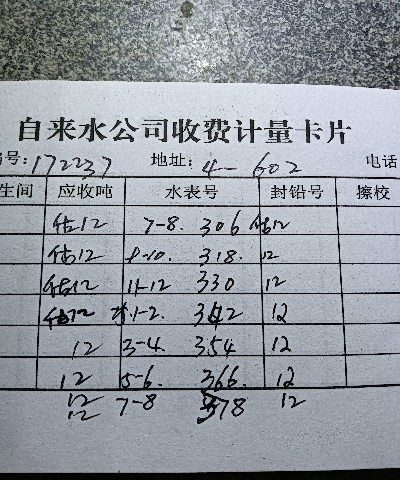 自来水公司收费计量卡片
号: 172237 地址: 4-602 电话
生间 应收吨 水表号 封铅号 擦校
估12 7-8. 306 估12
估12 9-10. 318. 12
估12 11-12 330 12
估12 1-2. 342 12
12 3-4. 354 12
12 5-6. 366. 12
12 12 7-8 378 12